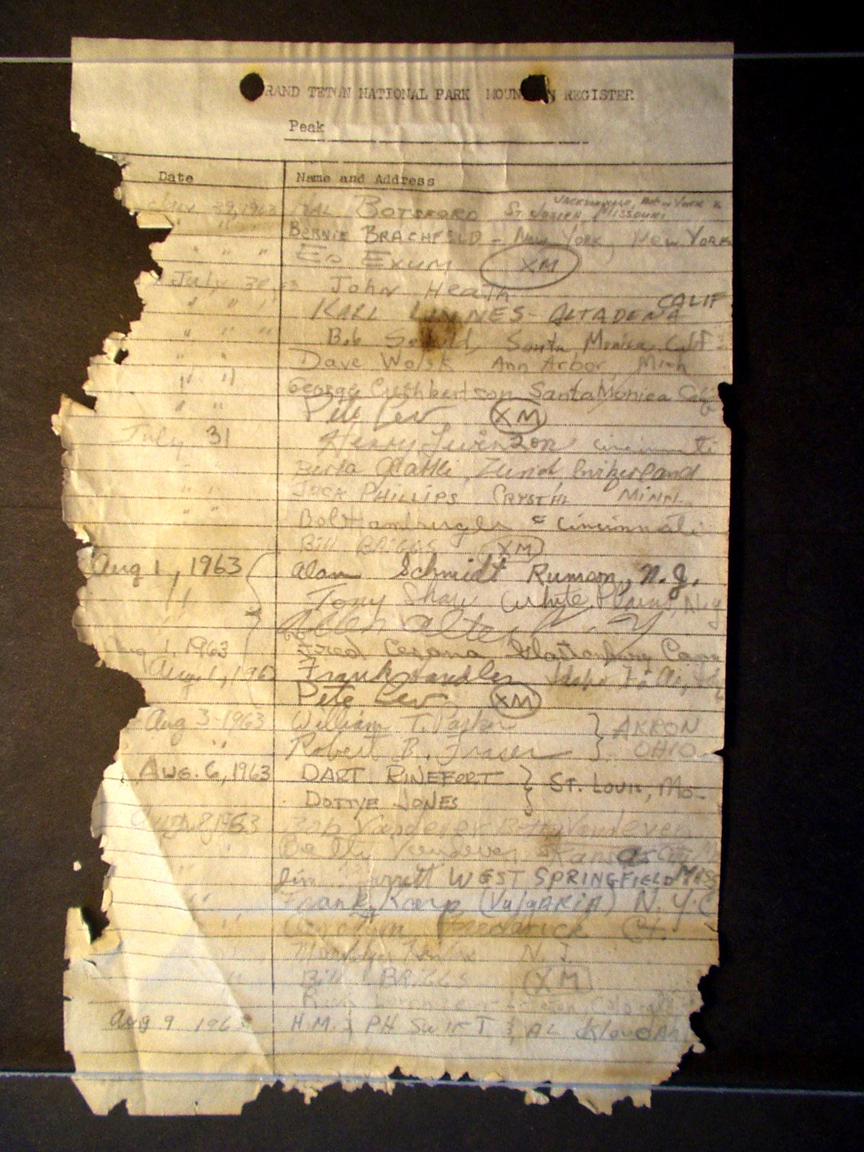 RAND TETON NATIONAL PARK MOUN REGISTER
Peak
Date Name and Address
29, 1963 HAL BOTSFORD ST. JOSEPH, MISSOURI
" " BERNIE BRACHFELD - NEW YORK, NEW YORK
" " ED EXUM XM
July 30 John Heath
" " " KARL LINNES - ALTADENA CALIF
" " " Bob Santa Monica, Calif
" " Dave Wolsk Ann Arbor, Mich
" " George Cuthbertson Santa Monica Calif
" " Pete Lev XM
July 31 Henry Levinson Cincinnati
Berta
" JACK PHILLIPS CRYSTAL MINN.
" " Bob Hamburger Cincinnati
BILL BRIGGS XM
Aug 1, 1963 Alan Schmidt Rumson, N.J.
" Tony Shaw White Plains, N.Y
Allen Alter N.Y
1, 1963 Fred Glastonbury Conn
Aug 1, 196 Frank Idaho Falls,
Pete Lev XM
Aug 3-1963 William T. } AKRON
" Robert B. Fraser } OHIO
AUG. 6, 1963 DART RINEFORT } ST. LOUIS, MO-
DOTTYE JONES
Aug. 8, 1963 Bob Vandever Betty Vandever
" Kansas
Jim WEST SPRINGFIELD MASS
" Frank Karp (VulgARIA) N.Y.C
"
Marilyn N.J.
" BILL BRIGGS (XM)
Aug 9 196 H.M. & PH SWIFT & AL